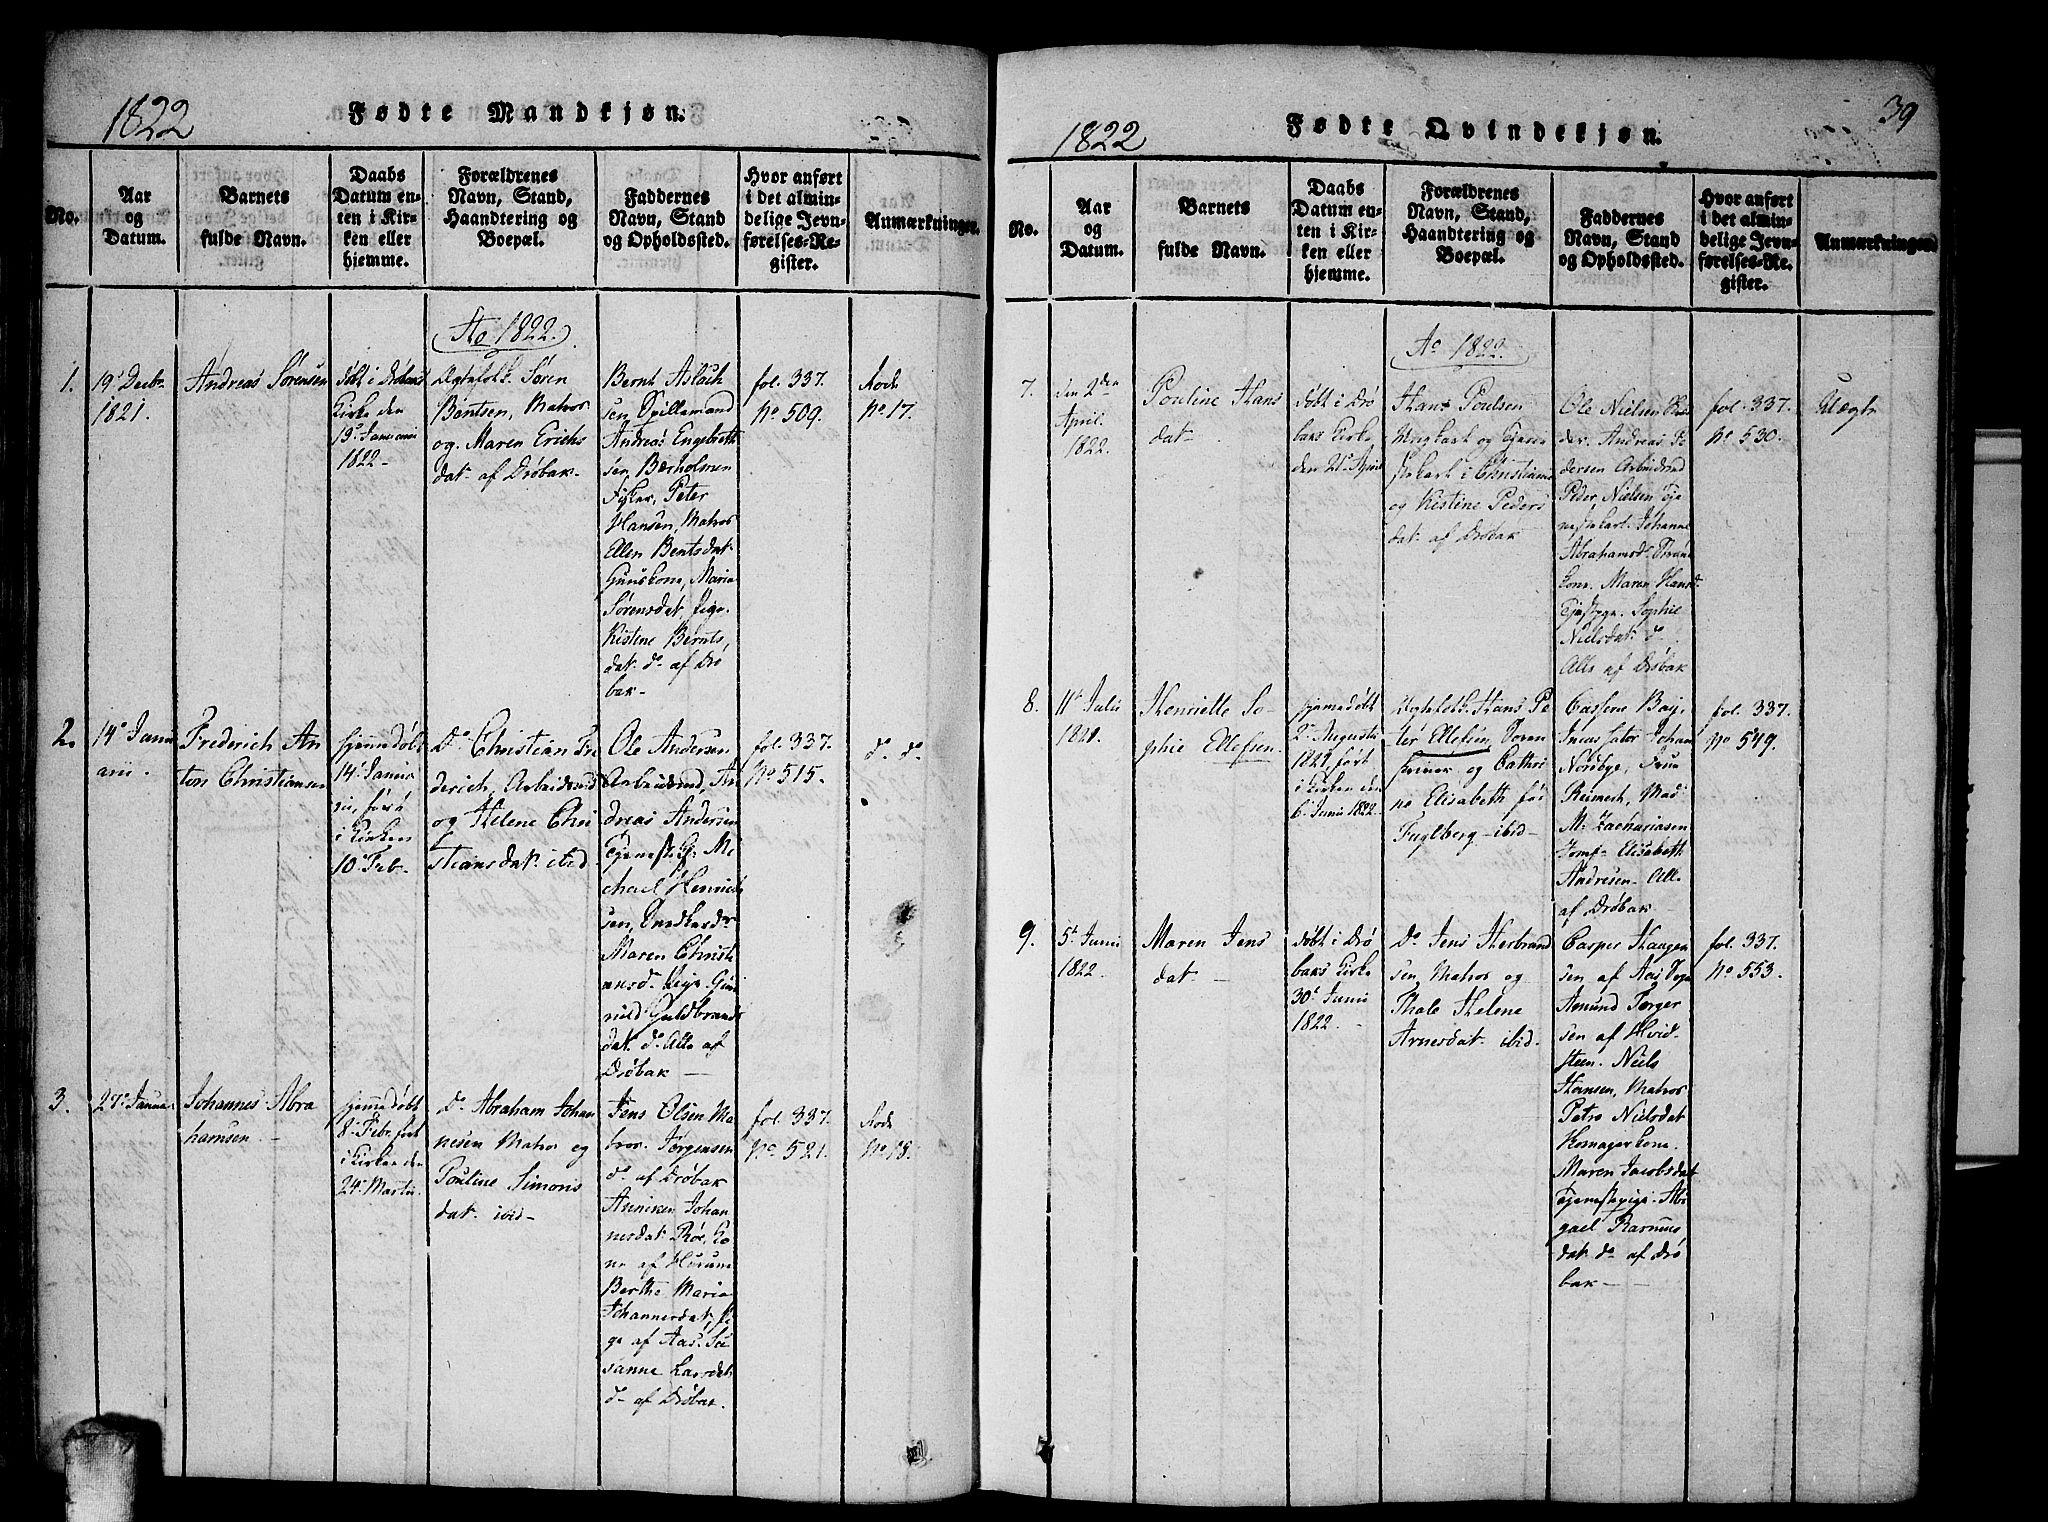 1822
Fødte Mandkjøn.
No.
Aar
og
Datum.
Barnets
fulde Navn.
Daabs
Datum en-
ten i Kir-
ken eller
hjemme.
Forældrenes
Navn, Stand,
Haandtering og
Boepæl.
Faddernes
Navn, Stand
og Opholdssted.
Hvor anført
i det almin-
delige Jevn-
førelses-Re-
gister.
Anmærkninger.
Ao 1822.
1.
19 Decbr
1821.
Andreas Sørensen
døbt i Drøbaks
Kirke den
19 Januarii
1822 -
Ægtefolk Søren
Bentsen, Matros
og Maren Erichs
dat. af Drøbak -
Bernt Aslach
sen Spillemand
Andreas Engebreth
sen, Bærholmen
Fisker, Peter
Hansen, Matros
Ellen Bentsdat.
Maria
Sørensdat. Pige.
Kistine Bernts
dat. do af Drø
bak -
fol. 337.
No 509.
No 17.
2.
14 Janu
arii -
Frederich An
ton Christiansen
hjemmedøbt
14 Janua
rii,
i Kirken
10 Febr.
Do Christian Fre
derich, Arbeidsmd
og Helene Chri
stiansdat. ibid
Ole Andersen
Arbeidsmd, An
dreas Andersen
Tjenestek. Mi
chael Henrich
sen,
Maren Christi
ansd. Pige Gun
nild Guldbrands
dat. do Alle af
Drøbak -
fol. 337.
No 515.
do do
3.
27 Janua.
Johannes Abra
hamsen -
hjemmedøbt
8 Febr. ført
i Kirken den
24 Martii.
do Abraham Johan
nesen Matros og
Pouline Simons
dat. ibid -
Jens Olsen Ma
tros. Jørgensen
do af Drøbak
Anniken Johan
nesdat. Røe, Ko
ne af Hurum
Berthe Maria
Johannesdat. Pi
ge af Aas. Su
sanne Larsdat.
do af Drøbak.
fol. 337.
No 521.
No 18.
39
1822
Fødte Qvindekjøn.
No.
Aar
og
Datum.
Barnets
fulde Navn.
Daabs
Datum en-
ten i Kir-
ken eller
hjemme.
Forældrenes
Navn, Stand,
Haandtering og
Boepæl.
Faddernes
Navn, Stand
og Opholdssted.
Hvor anført
i det almin-
delige Jevn-
førelses-Re-
gister.
Anmærkninger.
Ao 1822.
7.
den 2den
April.
1822.
Pouline Hans
dat. -
døbt i Drø
baks Kirke
den 21 April
Hans Poulsen
Ungkarl og Tjene
stekarl i Christiania
og Kistine Peders
dat. af Drøbak
Ole Nielsen
Andreas Pe
dersen Arbeidsmd
Peder Nielsen Tje
nestekarl. Johanne
Abrahamsd.
Kone. Maren Hansd.
Tjenstpge. Sophie
Nielsdat. do
Alle af Drøbak
fol. 337.
No 530.
Uægte
8.
11 Julii
1821.
Henriette So-
phie Ellefsen
hjemmedøbt
2 Augusti
1821, ført
i Kirken den
6 Junii 1822.
Ægtefolk Hans Pe
ter Ellefsen
og Cathri
ne Elisabeth fød
Fuglberg - ibid -
Casserer Bay,
Johan
Nordbye, Fru
Reimers, Mad:
M. Zachariasen
Jomf. Elisabeth
Andresen - Alle
af Drøbak -
fol. 337.
No 549.
9.
5 Junii
1822.
Maren Jens
dat. -
døbt i Drø
baks Kirke
30 Junii
1822. -
Do Jens Herbrand
sen, Matros og
Thale Helene
Arnesdat. ibid -
Casper Haagen
sen af Aas Sogn
Amund Torger
sen af Hvid
steen. Niels
Hansen, Matros
Petro Nielsdat.
Maren Jacobsdat.
Tjenestepige. Abi
gael Rasmus
dat. do af Drø
bak -
fol. 337.
No 553.